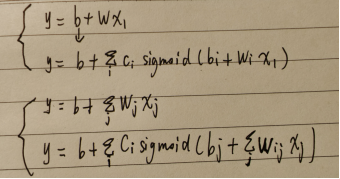 y = b + Wx₁
y = b + Σᵢ cᵢ sigmoid (bᵢ + Wᵢ x₁)
y = b + Σⱼ Wⱼxⱼ
y = b + Σᵢ Cᵢ sigmoid (bⱼ + Σⱼ Wᵢⱼ xⱼ)